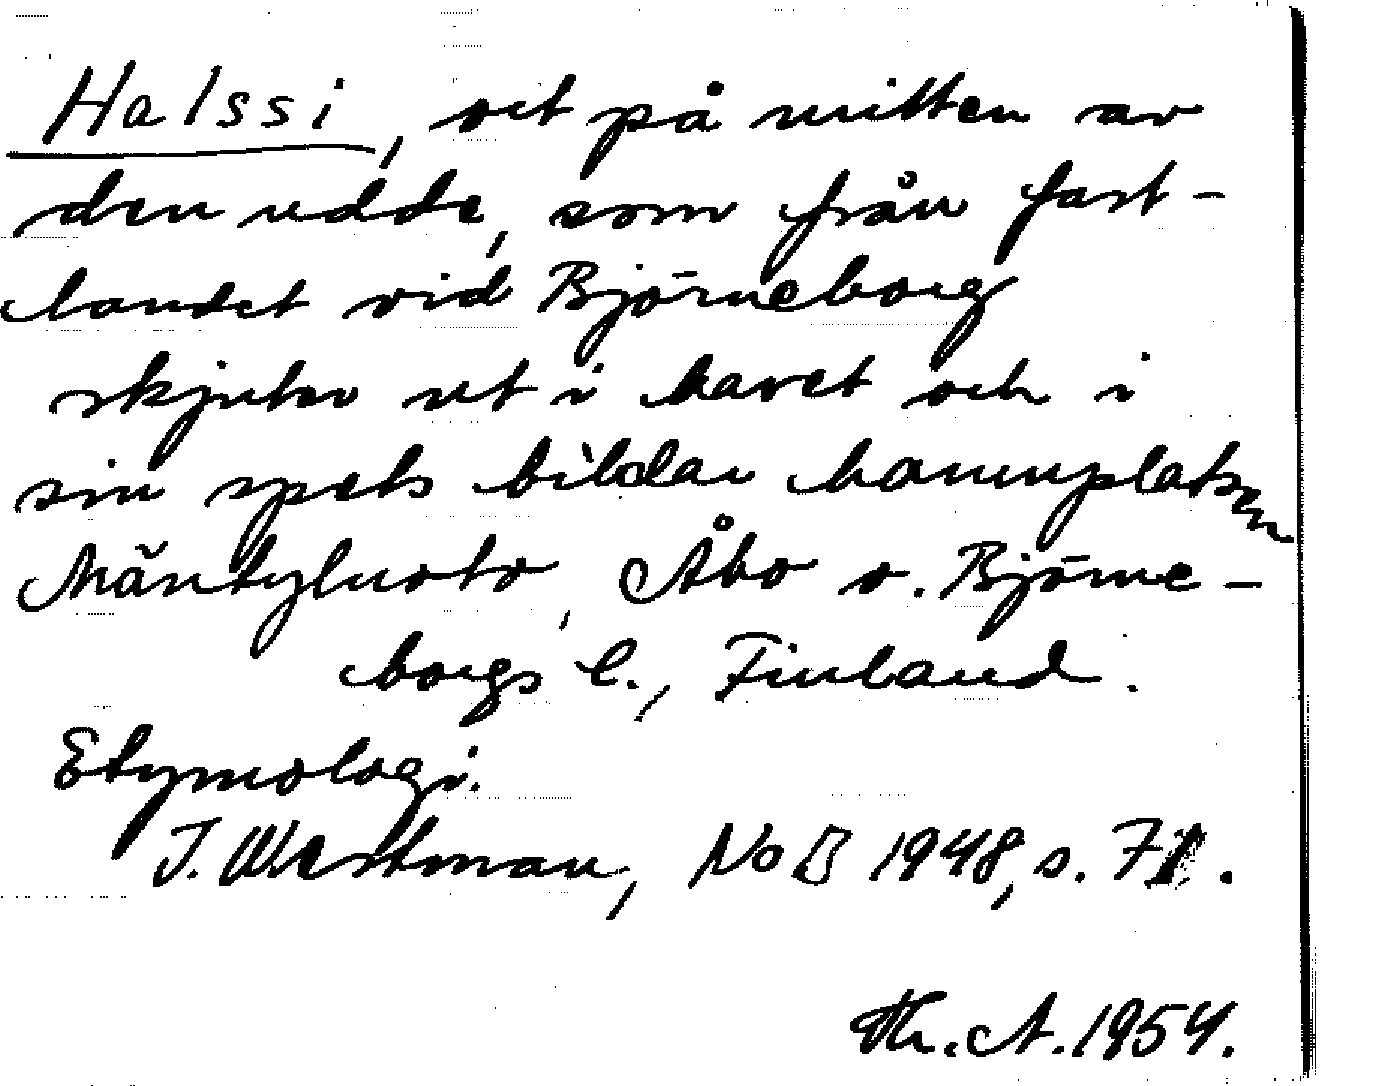 Halssi, ort på mitten av
den udde, som från fast-
landet vid Björneborg
skjuter ut i havet och i
sin spets bildar hamnplatsen
Mäntyluoto, Åbo o. Björne-
borgs l., Finland.
Etymologi.
I. Westman, NoB 1948, s. 71.
Th. A. 1954.